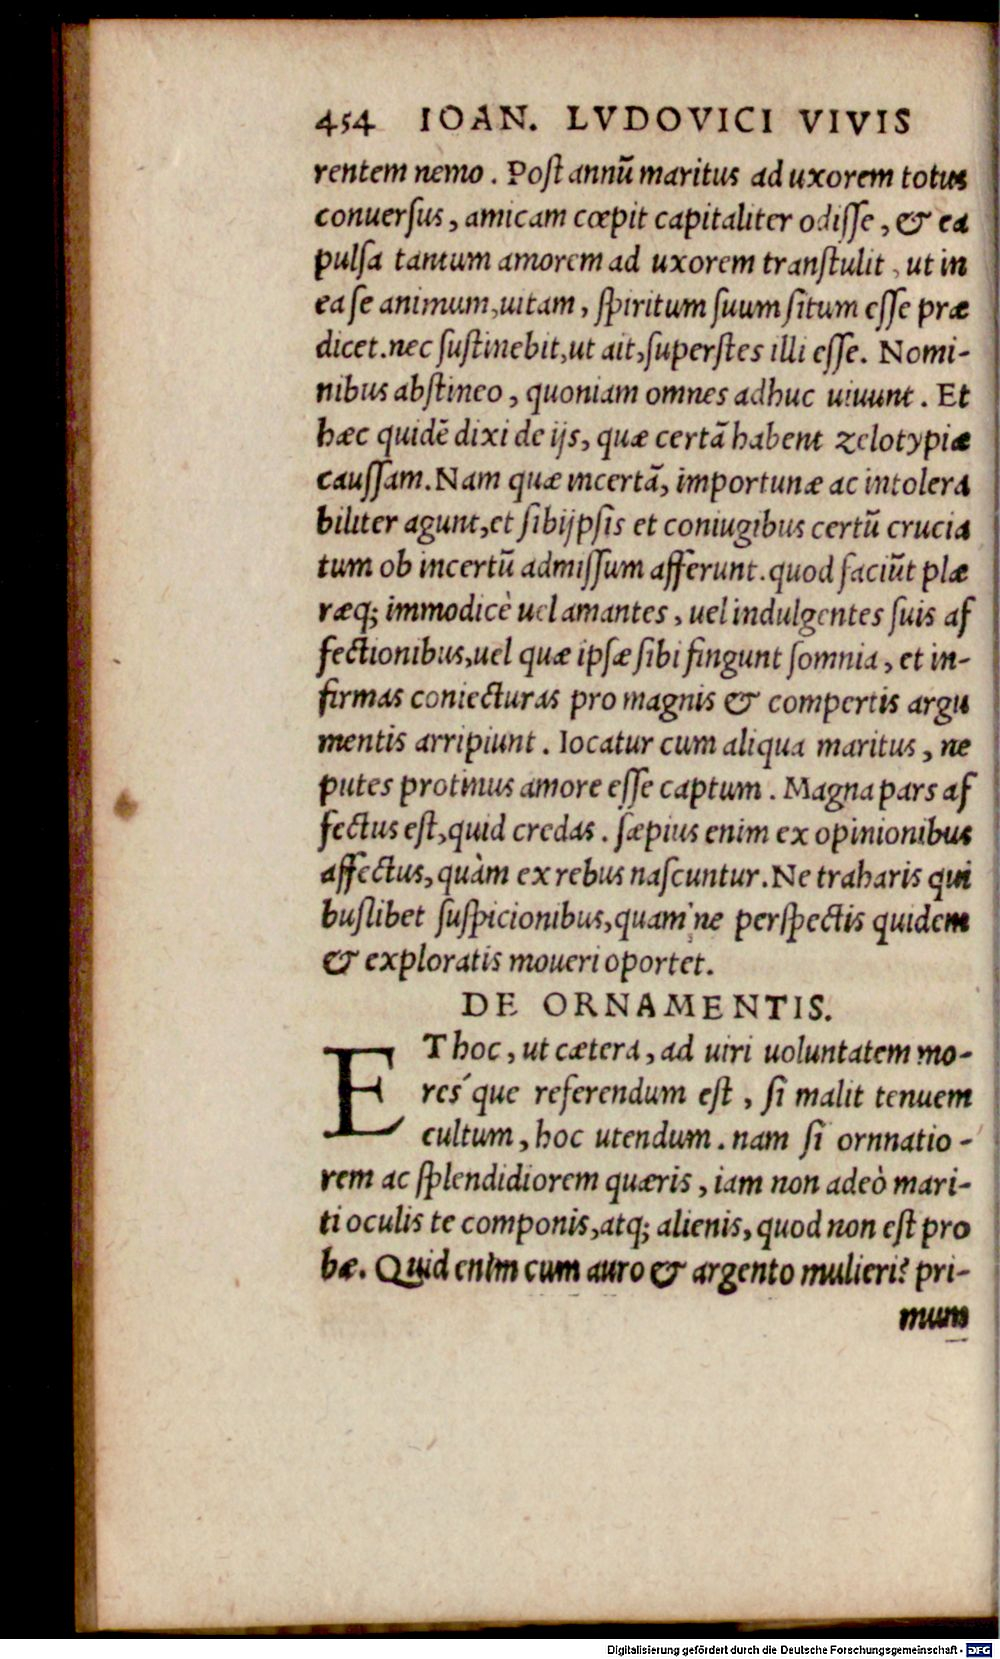 454 IOAN. LVDOVICI VIVIS
rentem nemo. Post annũ maritus ad uxorem totus
conuersus, amicam cœpit capitaliter odisse, & ea
pulsa tantum amorem ad uxorem transtulit, ut in
ea se animum, uitam, spiritum suum situm esse præ
dicet. nec sustinebit, ut ait, superstes illi esse. Nomi-
nibus abstineo, quoniam omnes adhuc uiuunt. Et
hæc quidẽ dixi de ijs, quæ certã habent zelotypiæ
caussam. Nam quæ incertã, importunæ ac intolera
biliter agunt, et sibijpsis et coniugibus certũ crucia
tum ob incertũ admissum afferunt. quod faciũt plæ
ræq; immodicè uel amantes, uel indulgentes suis af
fectionibus, uel quæ ipsæ sibi fingunt somnia, et in-
firmas coniecturas pro magnis & compertis argu
mentis arripiunt. Iocatur cum aliqua maritus, ne
putes protinus amore esse captum. Magna pars af
fectus est, quid credas. sæpius enim ex opinionibus
affectus, quàm ex rebus nascuntur. Ne traharis qui
buslibet suspicionibus, quam ne perspectis quidem
& exploratis moueri oportet.
DE ORNAMENTIS.
ET hoc, ut cætera, ad uiri uoluntatem mo-
res´que referendum est, si malit tenuem
cultum, hoc utendum. nam si ornnatio-
rem ac splendidiorem quæris, iam non adeò mari-
ti oculis te componis, atq; alienis, quod non est pro
bæ. Quid enim cum auro & argento mulieri? pri-
mum
Digitalisierung gefördert durch die Deutsche Forschungsgemeinschaft - DFG